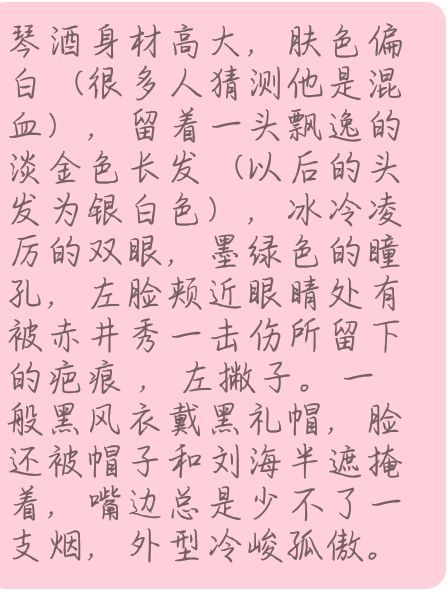 琴酒身材高大，肤色偏
白（很多人猜测他是混
血），留着一头飘逸的
淡金色长发（以后的头
发为银白色），冰冷凌
厉的双眼，墨绿色的瞳
孔，左脸颊近眼睛处有
被赤井秀一击伤所留下
的疤痕，左撇子。一
般黑风衣戴黑礼帽，脸
还被帽子和刘海半遮掩
着，嘴边总是少不了一
支烟，外型冷峻孤傲。